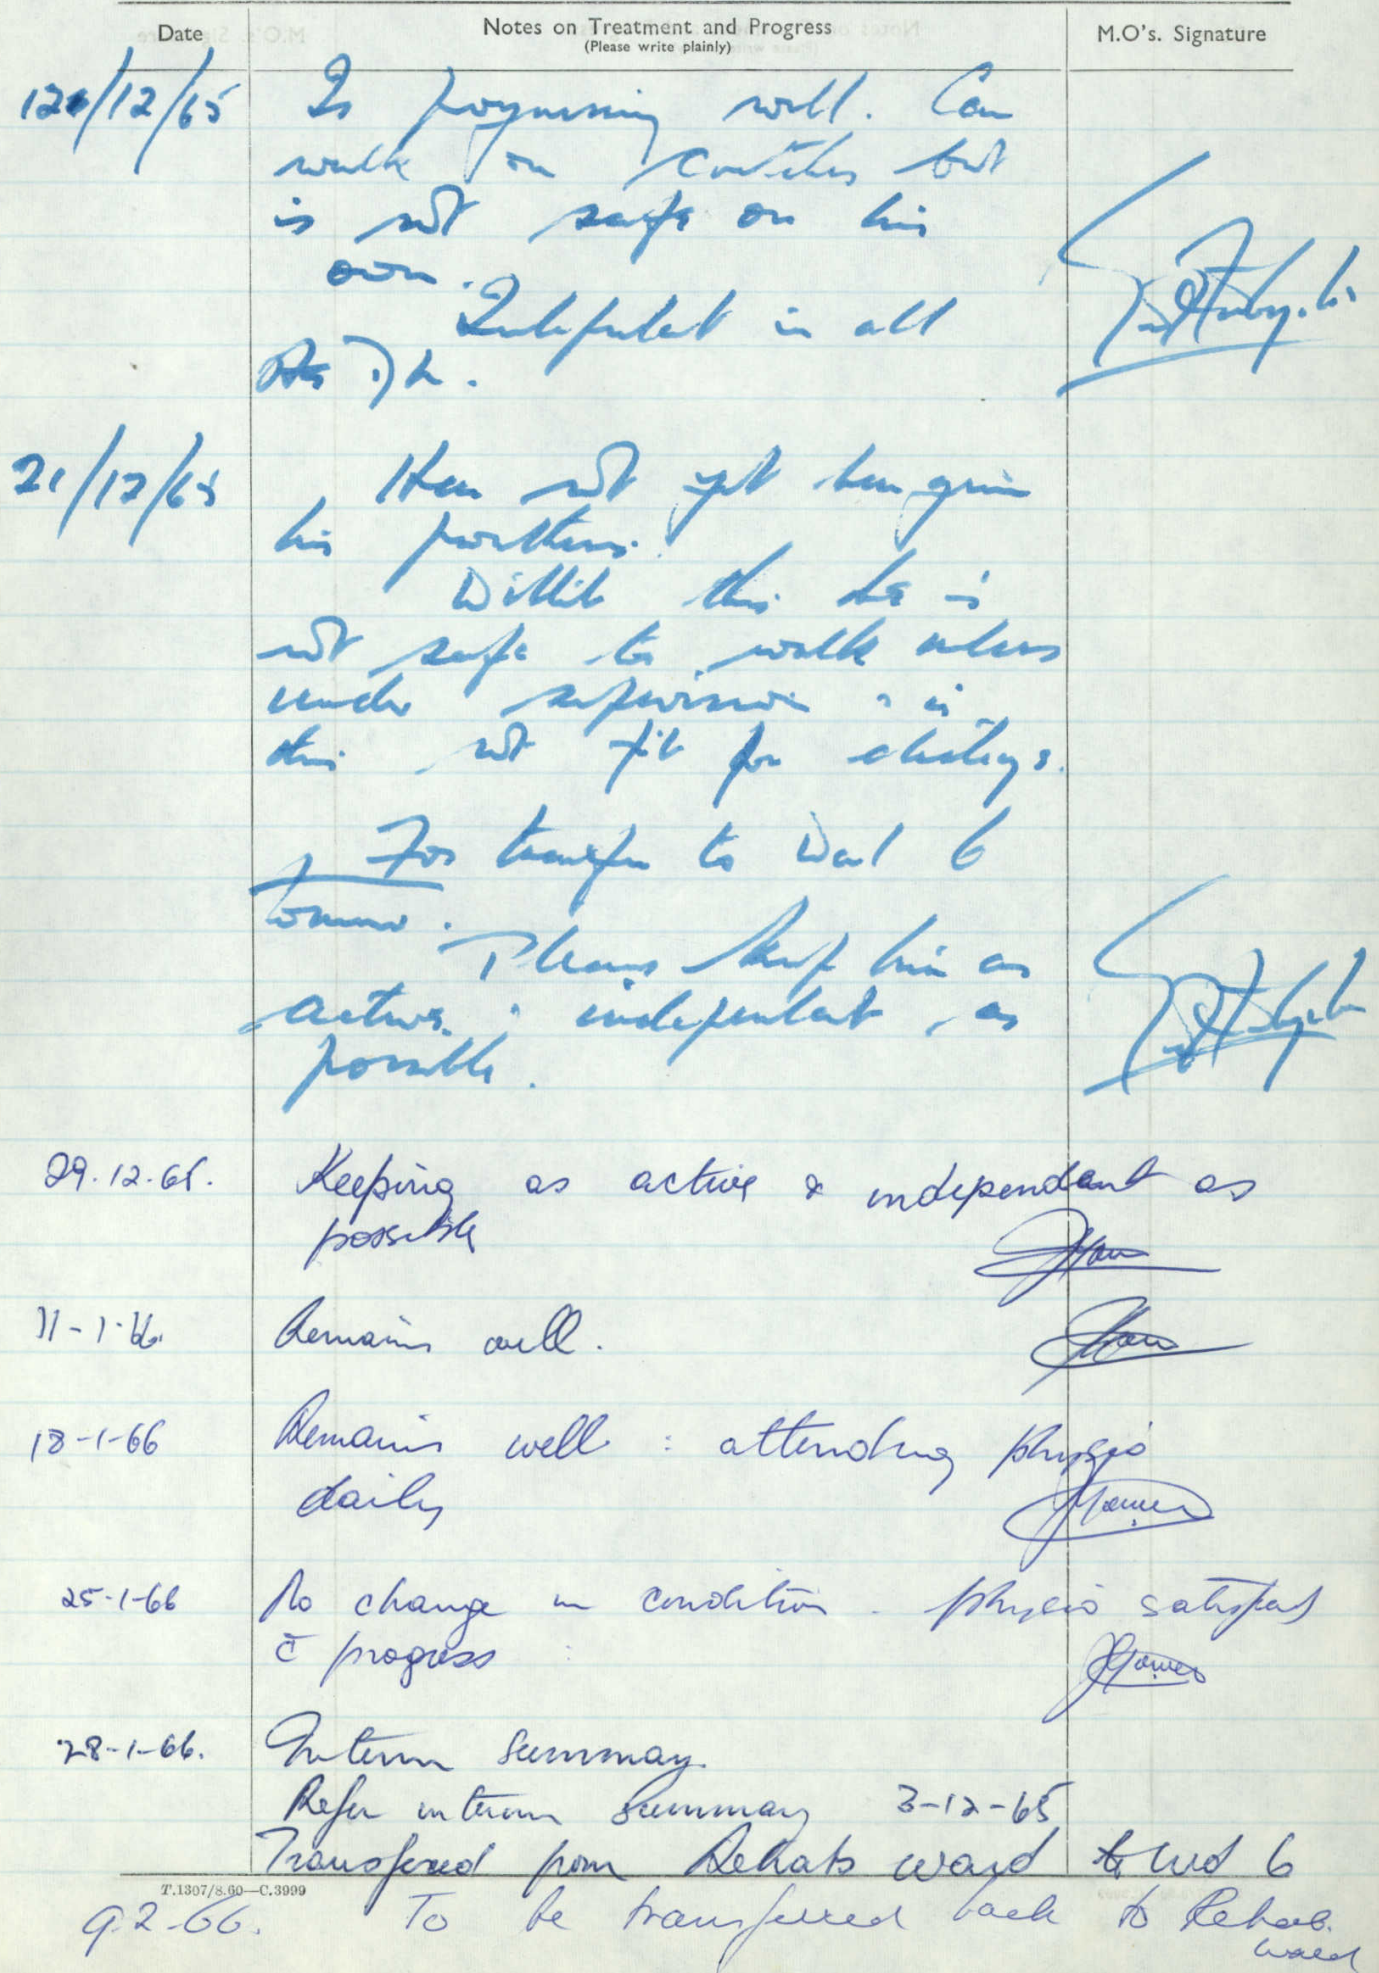 Date Notes on Treatment and Progress M.O's. Signature
(Please write plainly)
12/12/65 Is progressing well. Can
walk on crutches but
is not safe on his
own.
Independent in all
21/12/65 Has not yet been given
his prosthesis.
Without this he is
not safe to walk unless
under supervision & is
this not fit for
For transfer to Ward 6
tomorrow.
Please keep him as
active & independent as
possible.
29.12.65. Keeping as active & independant as
possible
11-1-66. Remains well.
18-1-66 Remains well : attending physio
daily
25-1-66 No change in condition. physio satisfied
c̄ progress
28-1-66. Interim Summary.
Refer interim Summary 3-12-65
Transfered from Rehab ward to Wd 6
T.1307/8.60—C.3999
9.2.66. To be transferred back to Rehab.
ward